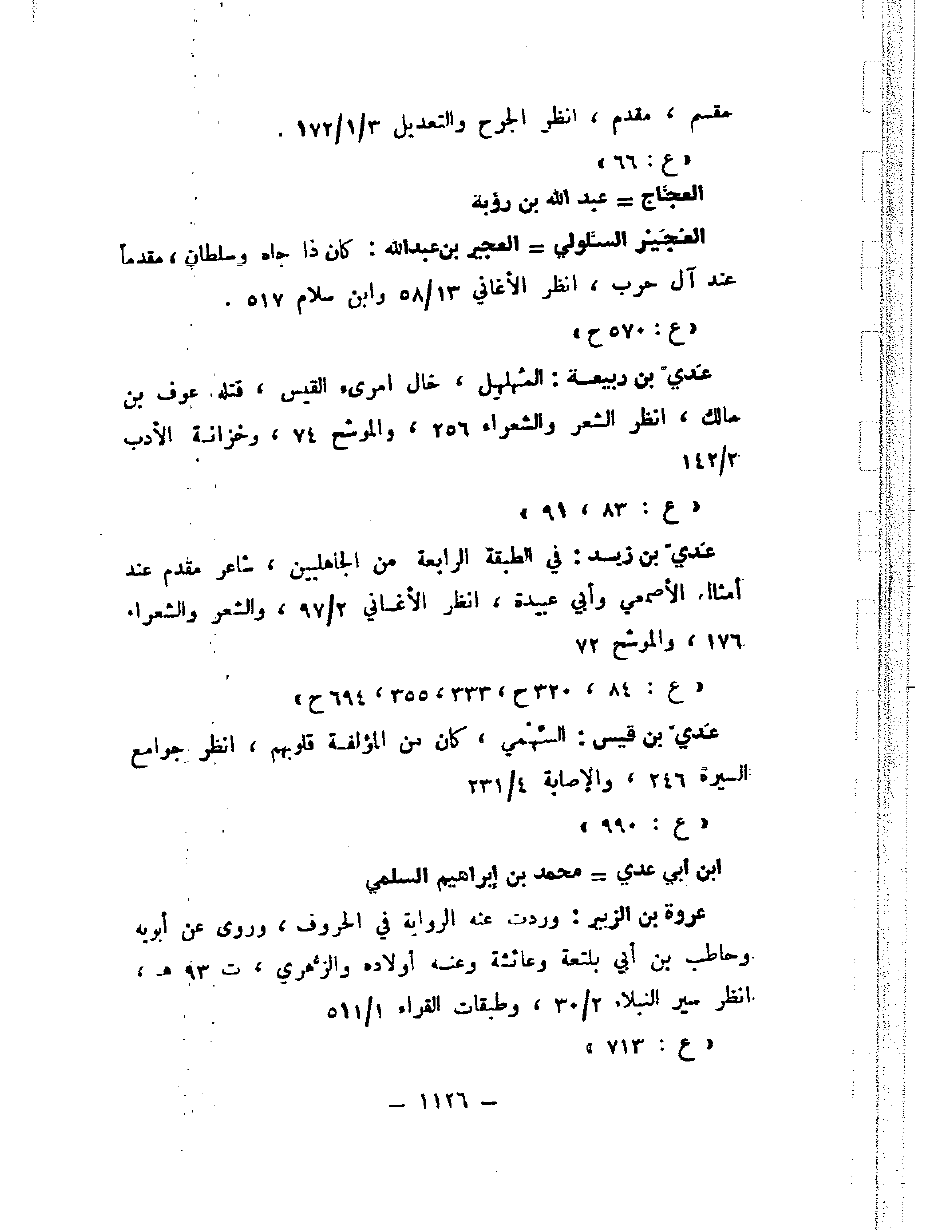 مقسم ، مقدم ، انظر الجرح والتعديل ١٧٢/١/٣ .
« ع : ٦٦ »
العجّاج = عبد الله بن رؤبة
العجَيْر السّلولي = العجير بن عبدالله : كان ذا جاه وسلطان ، مقدماً
عند آل حرب ، انظر الأغاني ٥٨/١٣ وابن سلام ٥١٧ .
« ع : ٥٧٠ ح »
عَديّ بن ربيعة : المُهلهِل ، خال امرىء القيس ، قتله عوف بن
مالك ، انظر الشعر والشعراء ٢٥٦ ، والموشح ٧٤ ، وخزانة الأدب
١٤٢/٢
« ع : ٨٣ ، ٩١ »
عَديّ بن زيد : في الطبقة الرابعة من الجاهليين ، شاعر مقدم عند
أمثال الأصمعي وأبي عبيدة ، انظر الأغاني ٩٧/٢ ، والشعر والشعراء
١٧٦ ، والموشح ٧٢
« ع : ٨٤ ، ٣٢٠ ح ، ٣٣٣ ، ٣٥٥ ، ٦٩٤ ح »
عَديّ بن قيس : السَّهْمي ، كان من المؤلفة قلوبهم ، انظر جوامع
السيرة ٢٤٦ ، والإصابة ٢٣١/٤
« ع : ٩٩٠ »
ابن أبي عدي = محمد بن إبراهيم السلمي
عروة بن الزبير : وردت عنه الرواية في الحروف ، وروى عن أبويه
وحاطب بن أبي بلتعة وعائشة وعنه أولاده والزُهري ، ت ٩٣ هـ ،
انظر سير النبلاء ٣٠/٢ ، وطبقات القراء ٥١١/١
« ع : ٧١٣ »
— ١١٢٦ —